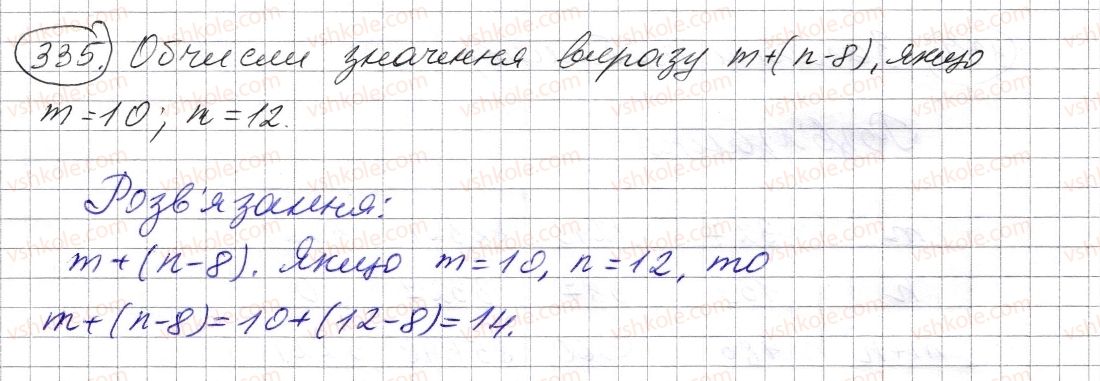 335. Обчисли значення виразу m+(n-8), якщо
m=10; n=12.
Розв'язання:
m+(n-8). Якщо m=10, n=12, то
m+(n-8)=10+(12-8)=14.
vshkole.com